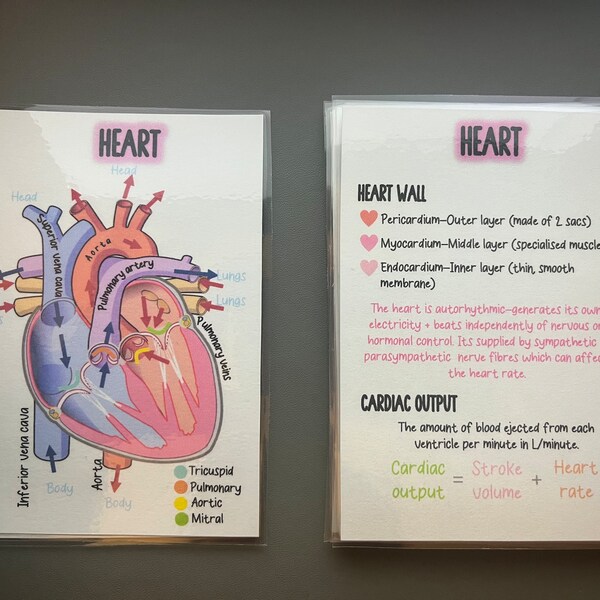 HEART
Head
Head
Superior vena cava
Aorta
Pulmonary artery
Lungs
Lungs
Pulmonary veins
Inferior vena cava
Aorta
Body
Body
Tricuspid
Pulmonary
Aortic
Mitral
HEART
HEART WALL
Pericardium-Outer layer (made of 2 sacs)
Myocardium-Middle layer (specialised muscle
Endocardium-Inner layer (thin, smooth
membrane)
The heart is autorhythmic-generates its own
electricity + beats independently of nervous or
hormonal control. Its supplied by sympathetic
parasympathetic nerve fibres which can affect
the heart rate.
CARDIAC OUTPUT
The amount of blood ejected from each
ventricle per minute in L/minute.
Cardiac output = Stroke volume + Heart rate